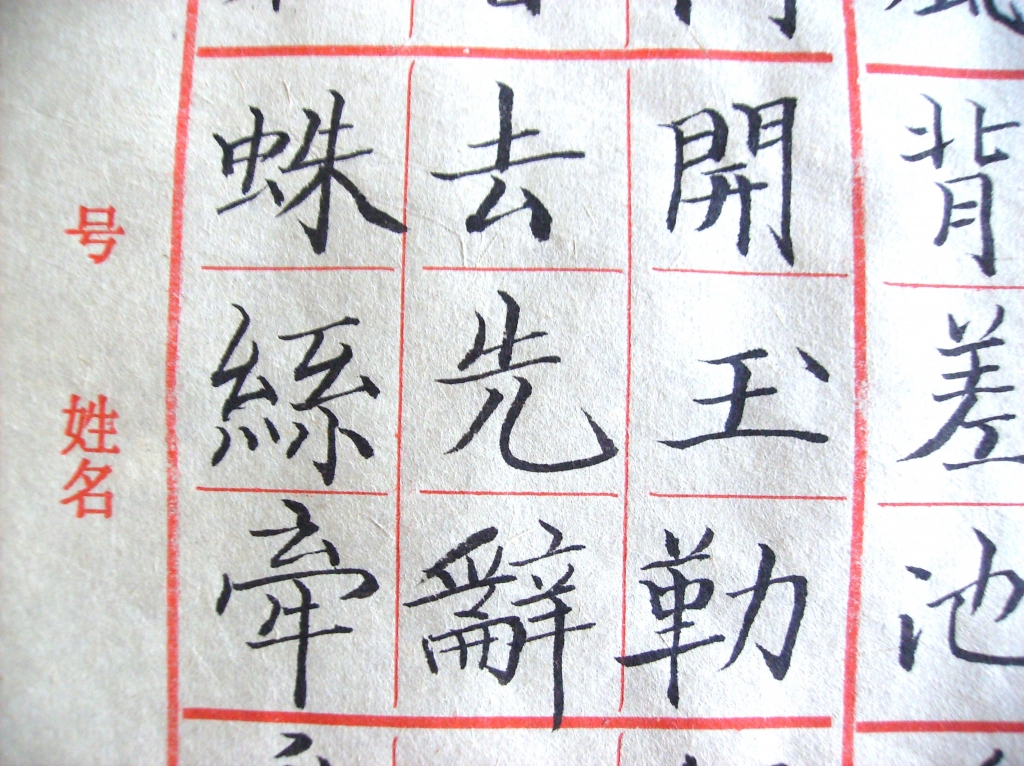 背差池
開玉勒
去先辭
蛛絲牽
号
姓名